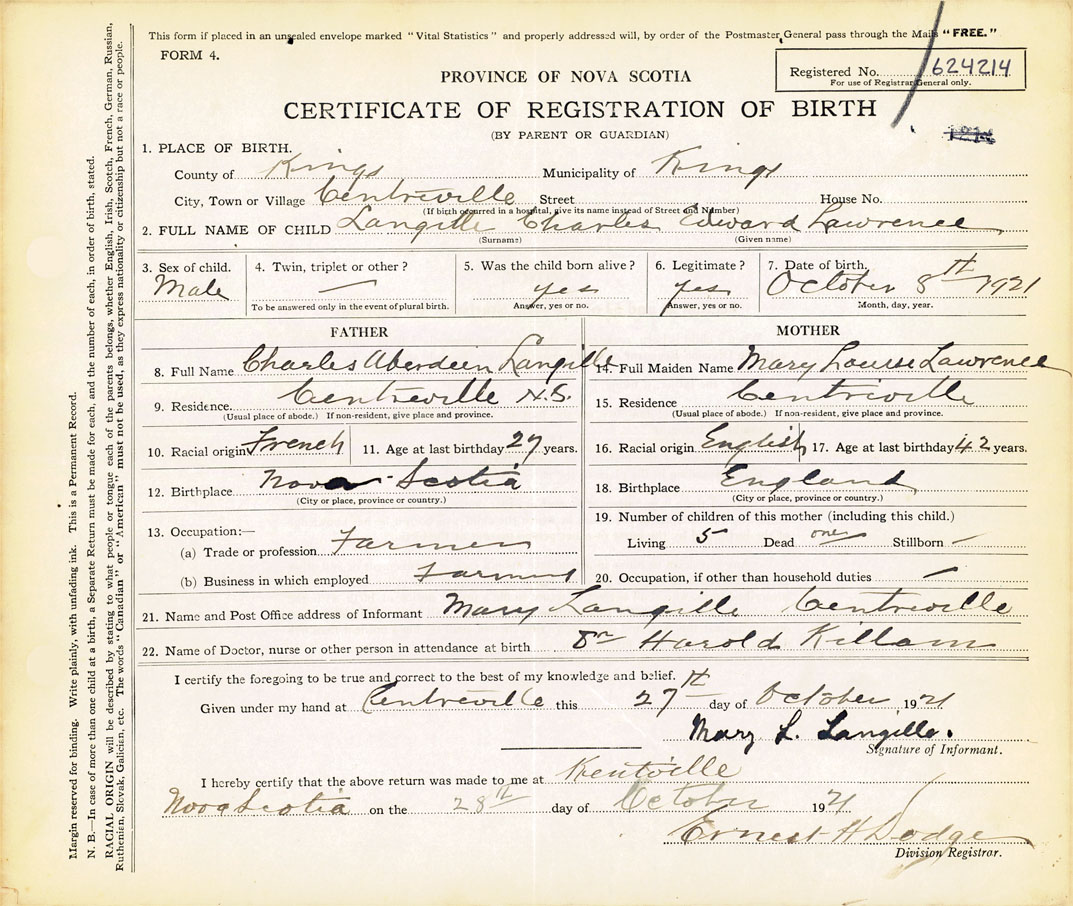 This form if placed in an unsealed envelope marked "Vital Statistics" and properly addressed will, by order of the Postmaster General pass through the Mails "FREE."
FORM 4.
PROVINCE OF NOVA SCOTIA
Registered No. 624214
For use of Registrar General only.
CERTIFICATE OF REGISTRATION OF BIRTH
(BY PARENT OR GUARDIAN)
1. PLACE OF BIRTH.
County of Kings Municipality of Kings
City, Town or Village Centreville Street House No.
(If birth occurred in a hospital, give its name instead of Street and Number)
2. FULL NAME OF CHILD Langille Charles Edward Lawrence
(Surname) (Given name)
3. Sex of child. 4. Twin, triplet or other? 5. Was the child born alive? 6. Legitimate? 7. Date of birth.
Male — yes yes October 8th 1921
To be answered only in the event of plural birth. Answer, yes or no. Answer, yes or no. Month, day, year.
FATHER MOTHER
8. Full Name Charles Aberdeen Langille 14. Full Maiden Name Mary Louise Lawrence
9. Residence. Centreville N.S. 15. Residence Centreville
(Usual place of abode.) If non-resident, give place and province. (Usual place of abode.) If non-resident, give place and province.
10. Racial origin French 11. Age at last birthday 29 years. 16. Racial origin English 17. Age at last birthday 42 years.
12. Birthplace Nova Scotia 18. Birthplace England
(City or place, province or country.) (City or place, province or country.)
13. Occupation:— 19. Number of children of this mother (including this child.)
(a) Trade or profession Farmer Living 5 Dead one Stillborn —
(b) Business in which employed Farming 20. Occupation, if other than household duties —
21. Name and Post Office address of Informant Mary Langille Centreville
22. Name of Doctor, nurse or other person in attendance at birth Dr Harold Killam
I certify the foregoing to be true and correct to the best of my knowledge and belief.
Given under my hand at Centreville this 27th day of October 1921
Mary L. Langille.
Signature of Informant.
I hereby certify that the above return was made to me at Kentville
Nova Scotia on the 28th day of October 1921
Ernest H Dodge
Division Registrar.
Margin reserved for binding. Write plainly, with unfading ink. This is a Permanent Record.
N. B.—In case of more than one child at a birth, a Separate Return must be made for each, and the number of each, in order of birth, stated.
RACIAL ORIGIN will be described by stating to what people or tongue each of the parents belongs, whether English, Irish, Scotch, French, German, Russian,
Ruthenian, Slovak, Galician, etc. The words "Canadian" or "American" must not be used, as they express nationality or citizenship but not a race or people.